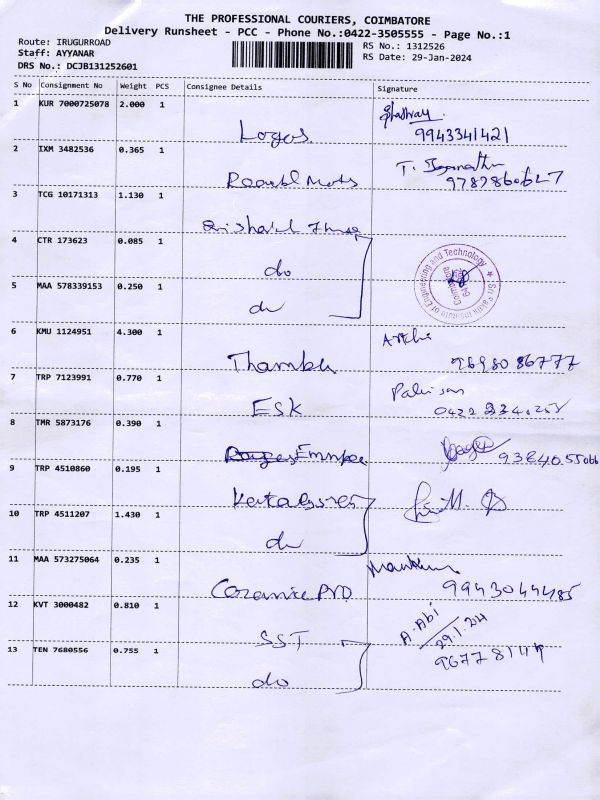 THE PROFESSIONAL COURIERS, COIMBATORE
Delivery Runsheet - PCC - Phone No.:0422-3505555 - Page No.:1
Route: IRUGURROAD
RS No.: 1312526
Staff: AYYANAR
RS Date: 29-Jan-2024
DRS No.: DCJB131252601
S No Consignment No Weight PCS Consignee Details Signature
1 KUR 7000725078 2.000 1
Logos
9943341421
2 IXM 3482536 0.365 1
T.
3 TCG 10171313 1.130 1
4 CTR 173623 0.085 1
do
of Engineering and Technology
5 MAA 578339153 0.250 1
do
6 KMU 1124951 4.300 1
9698086777
7 TRP 7123991 0.770 1
ESK
0422
8 TMR 5873176 0.390 1
9 TRP 4510860 0.195 1
10 TRP 4511207 1.430 1
do
11 MAA 573275064 0.235 1
9943044485
12 KVT 3000482 0.810 1
SST
A. Abi
29.1.24
13 TEN 7680556 0.755 1
do